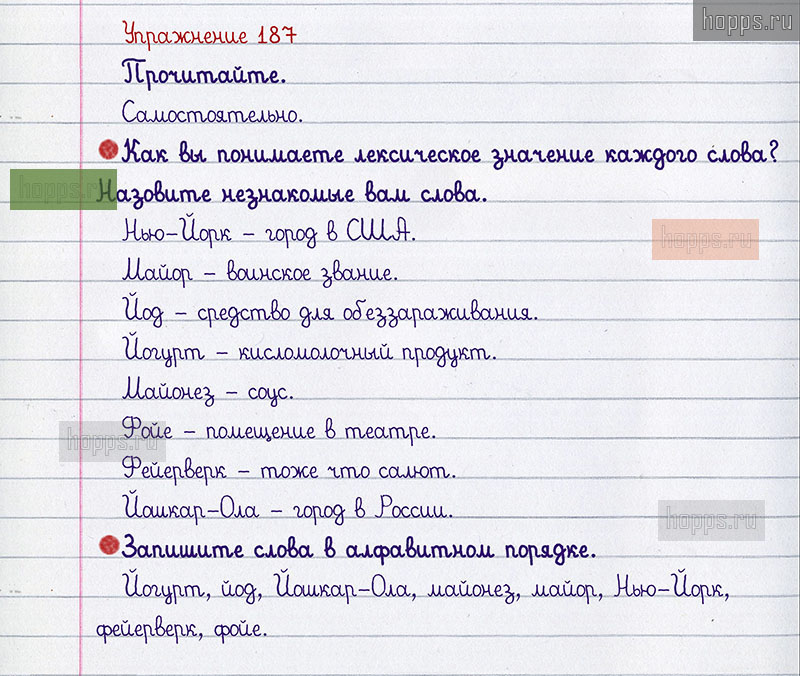 hopps.ru
Упражнение 187
Прочитайте.
Самостоятельно.
Как вы понимаете лексическое значение каждого слова?
hopps.ru
Назовите незнакомые вам слова.
Нью-Йорк – город в США.
hopps.ru
Майор – воинское звание.
Йод – средство для обеззараживания.
Йогурт – кисломолочный продукт.
Майонез – соус.
hopps.ru
Фойе – помещение в театре.
Фейерверк – тоже что салют.
Йошкар-Ола – город в России.
hopps.ru
Запишите слова в алфавитном порядке.
Йогурт, йод, Йошкар-Ола, майонез, майор, Нью-Йорк,
фейерверк, фойе.